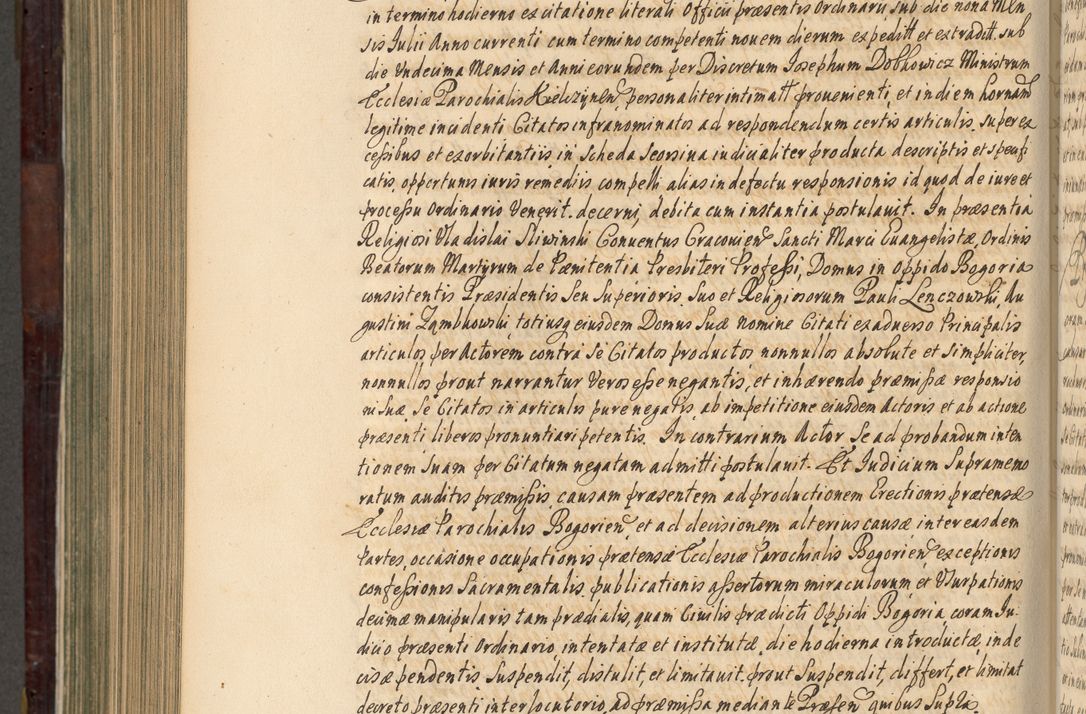 in termino hodierno ex citatione literali Officii præsentis Ordinarii, sub die nona Men
sis Julii Anno currenti cum termino competenti nouem dierum expeditt et extraditt. sub
die Vndecima Mensis et Anni eorundem per Discretum Josephum Dobkowicz Ministrum
Ecclesiæ Parochialis Kielczynen, personaliter intimatt provenienti, et in diem hornam
legitime incidenti Citatos infranominatos ad respondendum certis articulis. super ex
cessibus et exorbitantiis in Scheda Seorsiua iudicialiter producta descriptis et specifi
catis, opportunis iuris remediis compelli alias in defectu responsionis id quod de iure et
processu Ordinario Venerit. decerni, debita cum instantia postulauit. In præsentia
Religiosi Vladislai Sliwinski Conuentus Cracouien Sancti Marci Euangelistæ, Ordinis
Beatorum Martyrum de Pænitentia Presbiteri Professi, Domus in Oppido Bogoria
consistentis Præsidentis Seu Superioris. Suo et Religiosorum Pauli Lenczowski, Au
gustini Zambkowski totiusq eiusdem Domus Suæ nomine Citati ex aduerso Principalis
articulos per Actorem contra Se Citatos productos nonnullos absolute et Simpliciter,
nonnullos prout narrantur Veros esse negantis, et inhærendo præmissæ responsio
ni Suæ, Se Citatos in articulis pure negatis, ab impetitione eiusdem Actoris et ab actione
præsenti liberos pronuntiari petentis. In contrarium Actor Se ad probandum inten
tionem Suam per Citatum negatam admitti postulauit. Et Judicium Supramemo
ratum auditis præmissis causam præsentem ad productionem Erectionis prætensæ
Ecclesiæ Parochialis Bogorien, et ad decisionem alterius causæ inter easdem
Partes, occasione occupationis prætensæ Ecclesiæ Parochialis Bogorien, exceptionis
confessionis Sacramentalis, publicationis assertorum miraculorum et Vsurpationis
decimæ manipularis tam prædialis, quam Ciuilis prædicti Oppidi Bogoria, coram Ju
dicio præsenti Ordinario intentatæ et institutæ, die hodierna introductæ, inde
cisæ pendentis Suspendit, distulit, et limitauit. prout Suspendit, differt, et limitat
decreto præsenti interlocutorio, ad præmissa mediante Præsen quibus Supra